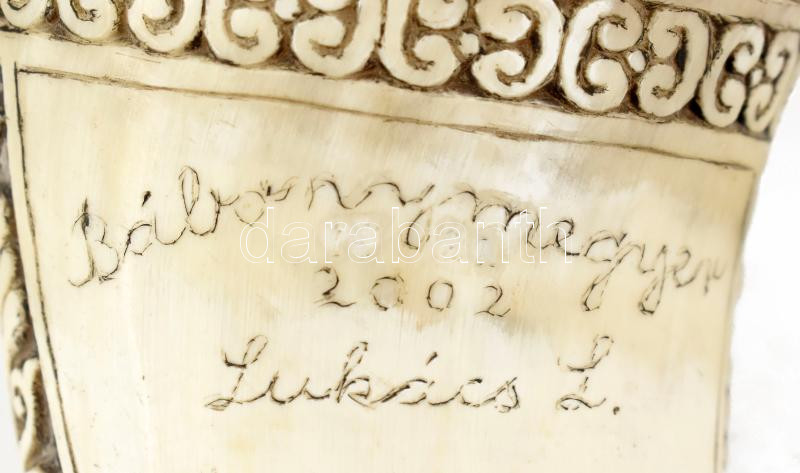 Bábonymegyer
darabanth
2002
Lukács L.